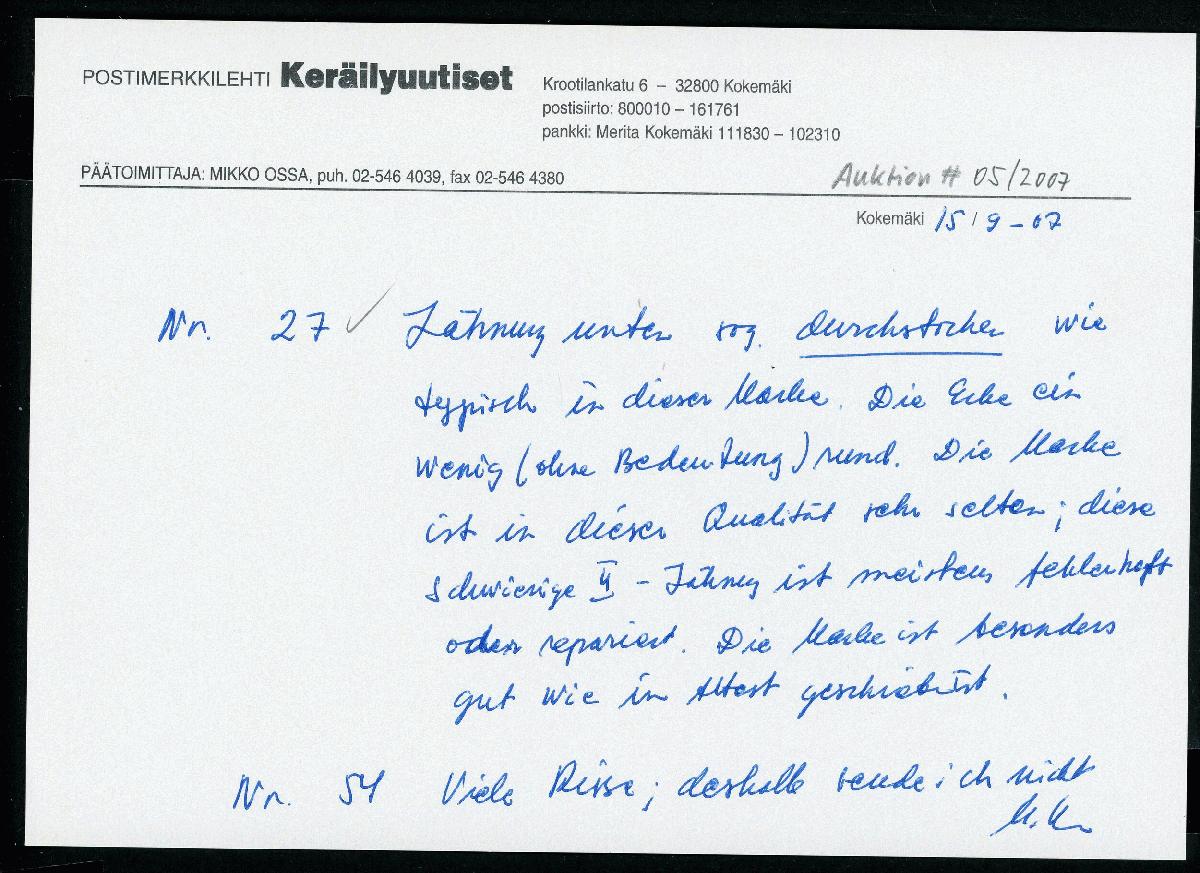 POSTIMERKKILEHTI Keräilyuutiset
Krootilankatu 6 – 32800 Kokemäki
postisiirto: 800010 – 161761
pankki: Merita Kokemäki 111830 – 102310
PÄÄTOIMITTAJA: MIKKO OSSA, puh. 02-546 4039, fax 02-546 4380
Auktion # 05/2007
Kokemäki 15 / 9 – 07
Nr. 27 ✓ Zähnung unten sog. durchstochen wie
typpisch in dieser Marke. Die Ecke ein
wenig (ohne Bedeutung) rund. Die Marke
ist in dieser Qualität sehr selten; diese
schwierige II – Zähnung ist meistens fehlerhaft
oder repariert. Die Marke ist besonders
gut wie in Attest geschrieben ist.
Nr. 54 Viele Risse; deshalb sende ich nicht